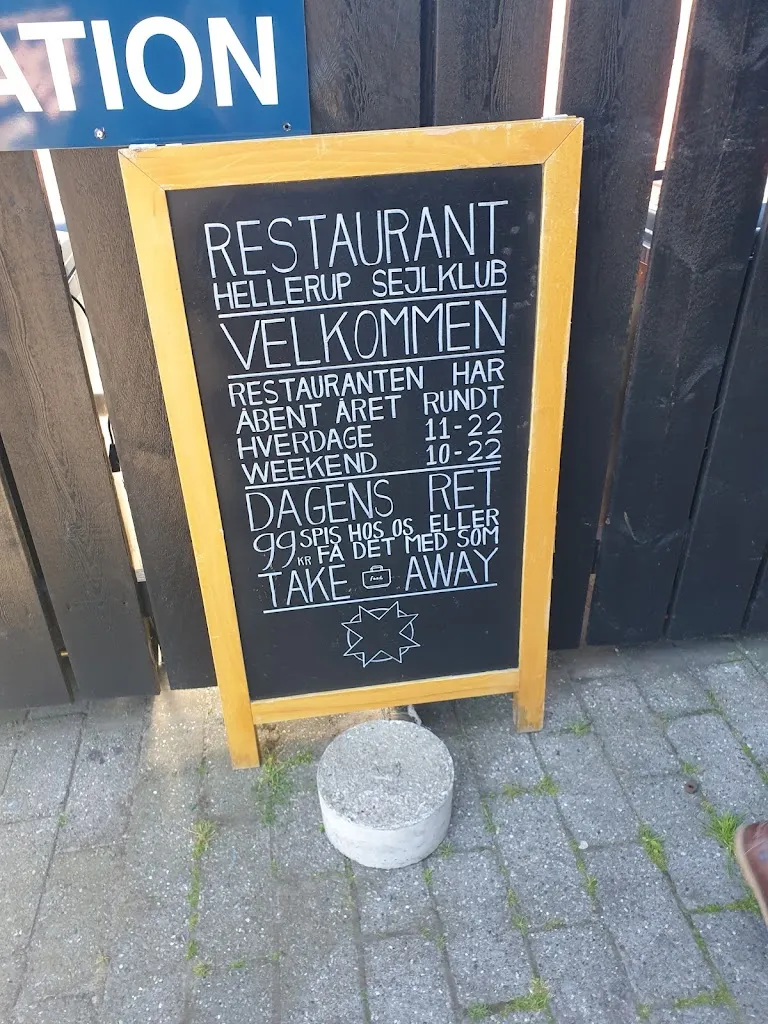 ATION
RESTAURANT
HELLERUP SEJLKLUB
VELKOMMEN
RESTAURANTEN HAR
ÅBENT ÅRET RUNDT
HVERDAGE 11-22
WEEKEND 10-22
DAGENS RET
99 KR SPIS HOS OS ELLER
FÅ DET MED SOM
TAKE AWAY